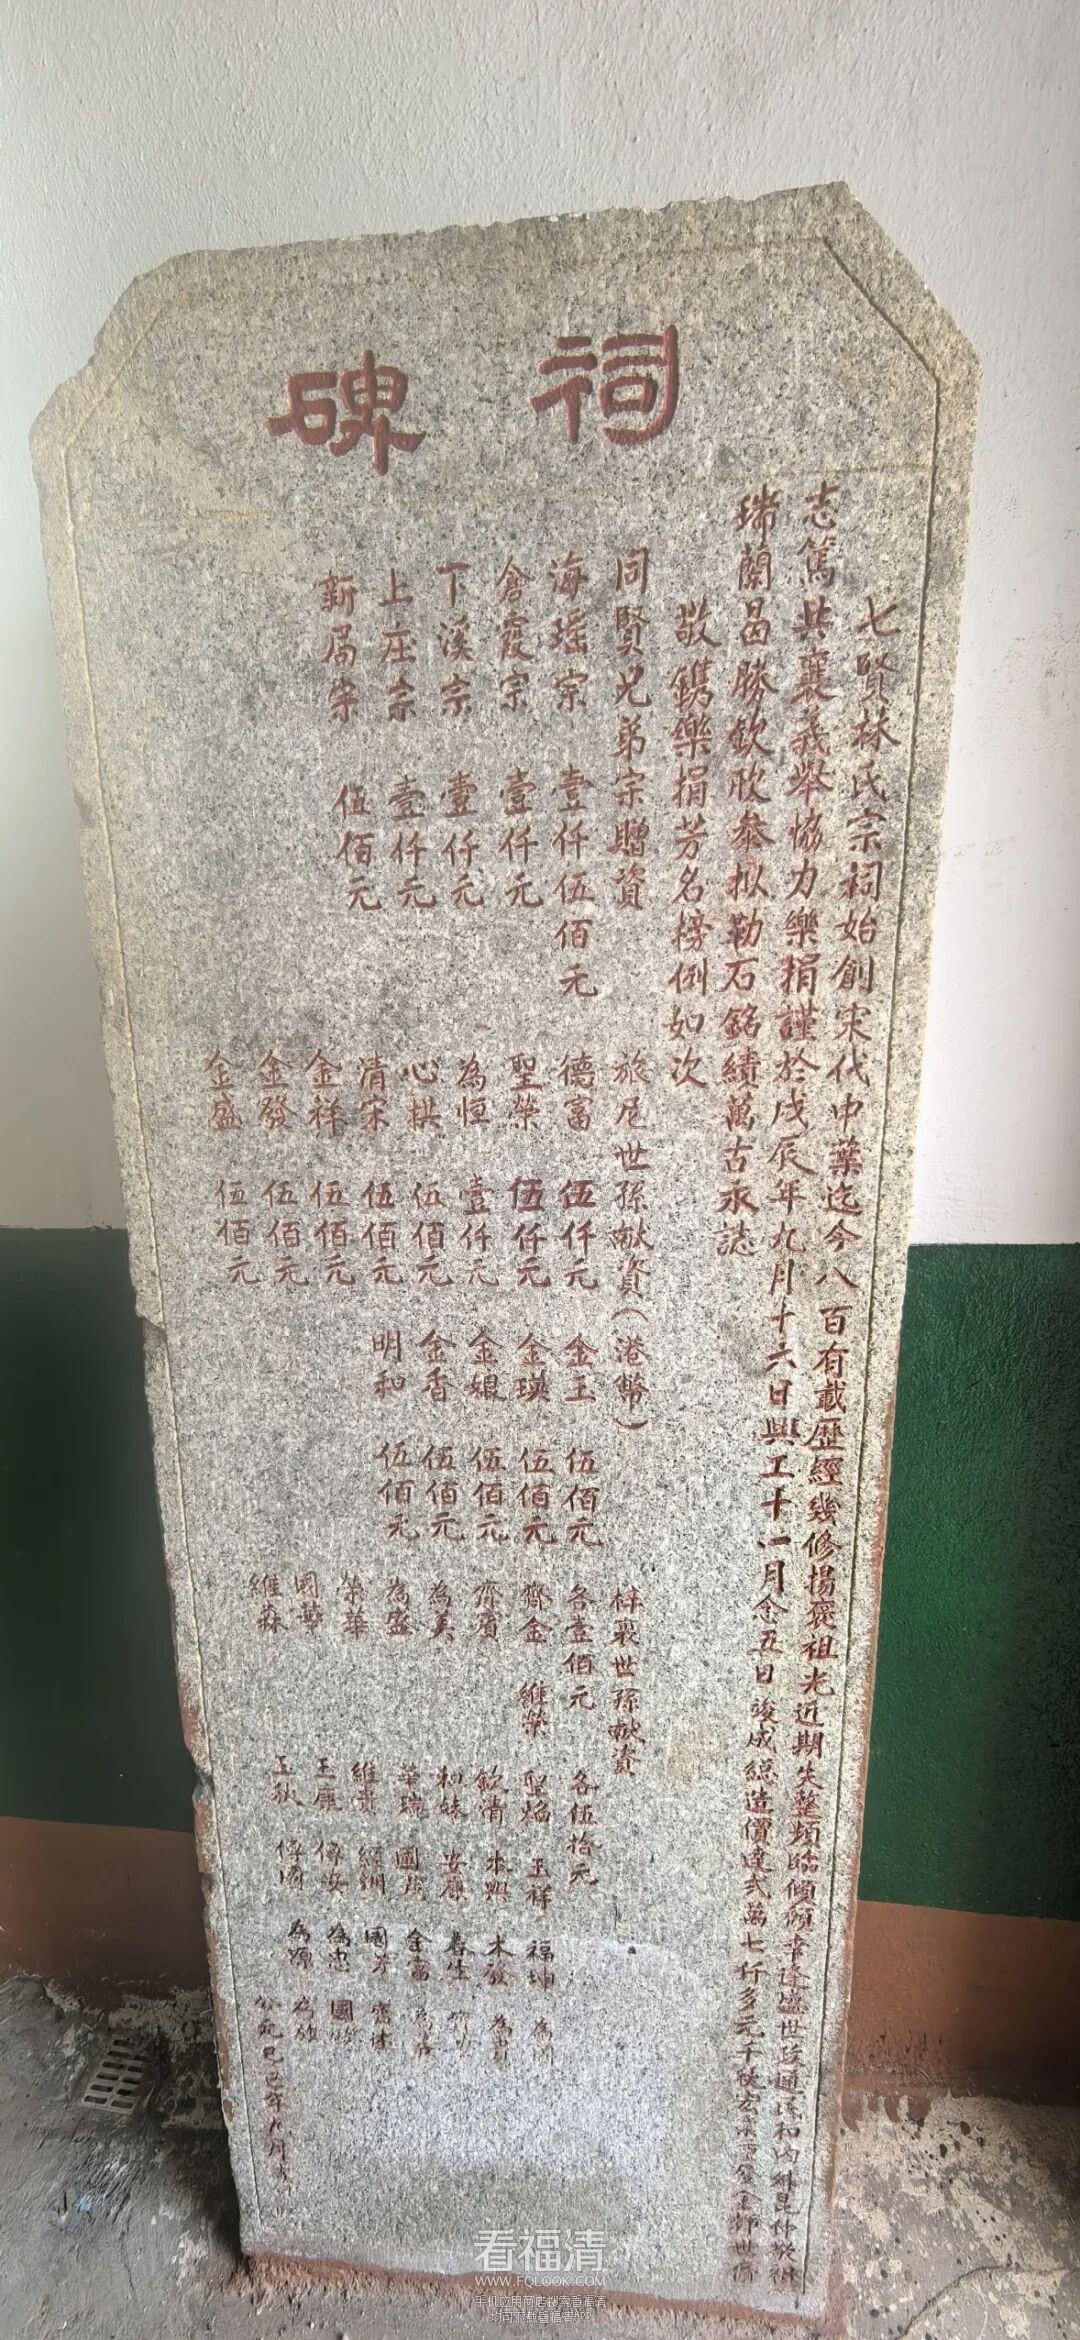 祠碑
七賢林氏宗祠始創宋代中葉迄今八百有載歷經幾修揚褒祖光近期失整頻臨傾頹幸逢盛世政通民和內外昆仲敬祖
志篤共襄義舉協力樂捐謹於戊辰年九月十六日興工十一月念五日竣成總造價達弍萬七仟多元
瑞蘭昌勝欽欣叅拟勒石銘績萬古永誌
敬鐫樂捐芳名榜例如次
同賢兄弟宗贈資
海瑶宗 壹仟伍佰元
倉霞宗 壹仟元
下溪宗 壹仟元
上庄宗 壹仟元
新局宗 伍佰元
旅尼世孫献資（港幣）
德富 伍仟元 金玉 伍佰元
聖榮 伍仟元 金瑛 伍佰元
為恒 壹仟元 金娘 伍佰元
心拱 伍佰元 金香 伍佰元
清宋 伍佰元 明和 伍佰元
金祥 伍佰元
金發 伍佰元
金盛 伍佰元
梓裏世孫献資
各壹佰元 各伍拾元
齊金 維榮 聖焰 玉祥 福坤
齊賓 欽清 木發
為美 和妹 安康 春生
為盛 華瑞 國茂 金富
榮華 維貴 國芳
國華 玉康 為忠 國
維森 玉狄 為源
公元己巳年九月
看福清
WWW.FQLOOK.COM
手机应用商店搜索看福清
均可下载看福清APP